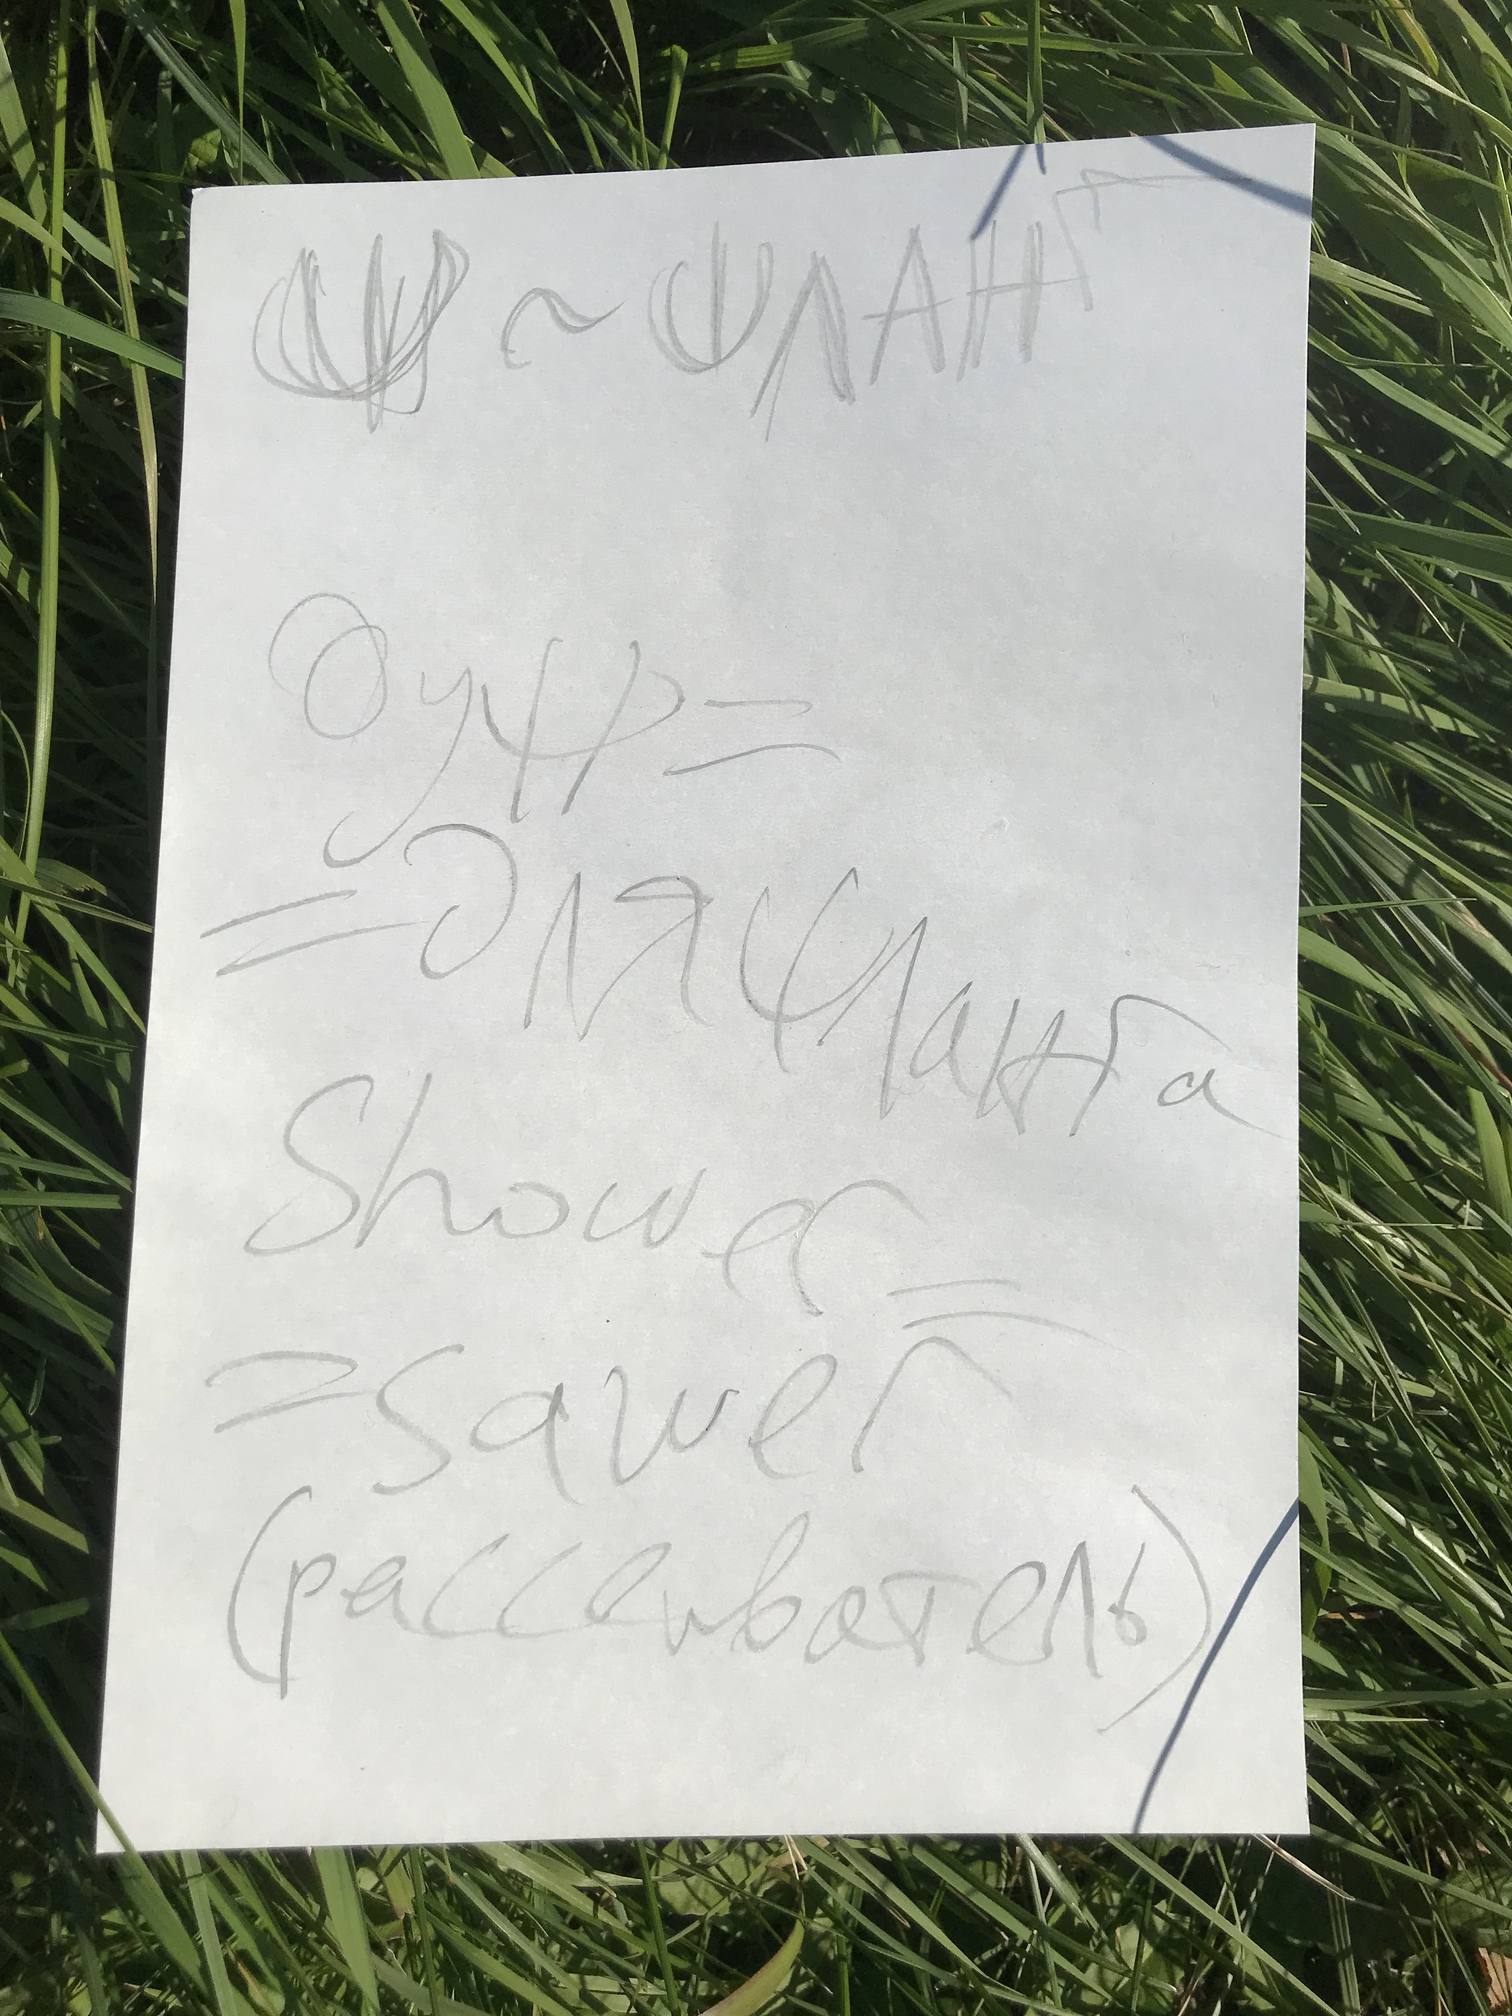 Ψ ~ ΨЛАНГ
Оуψр=
=Для ψланга
Shower=
=sawer
(рассеиватель)